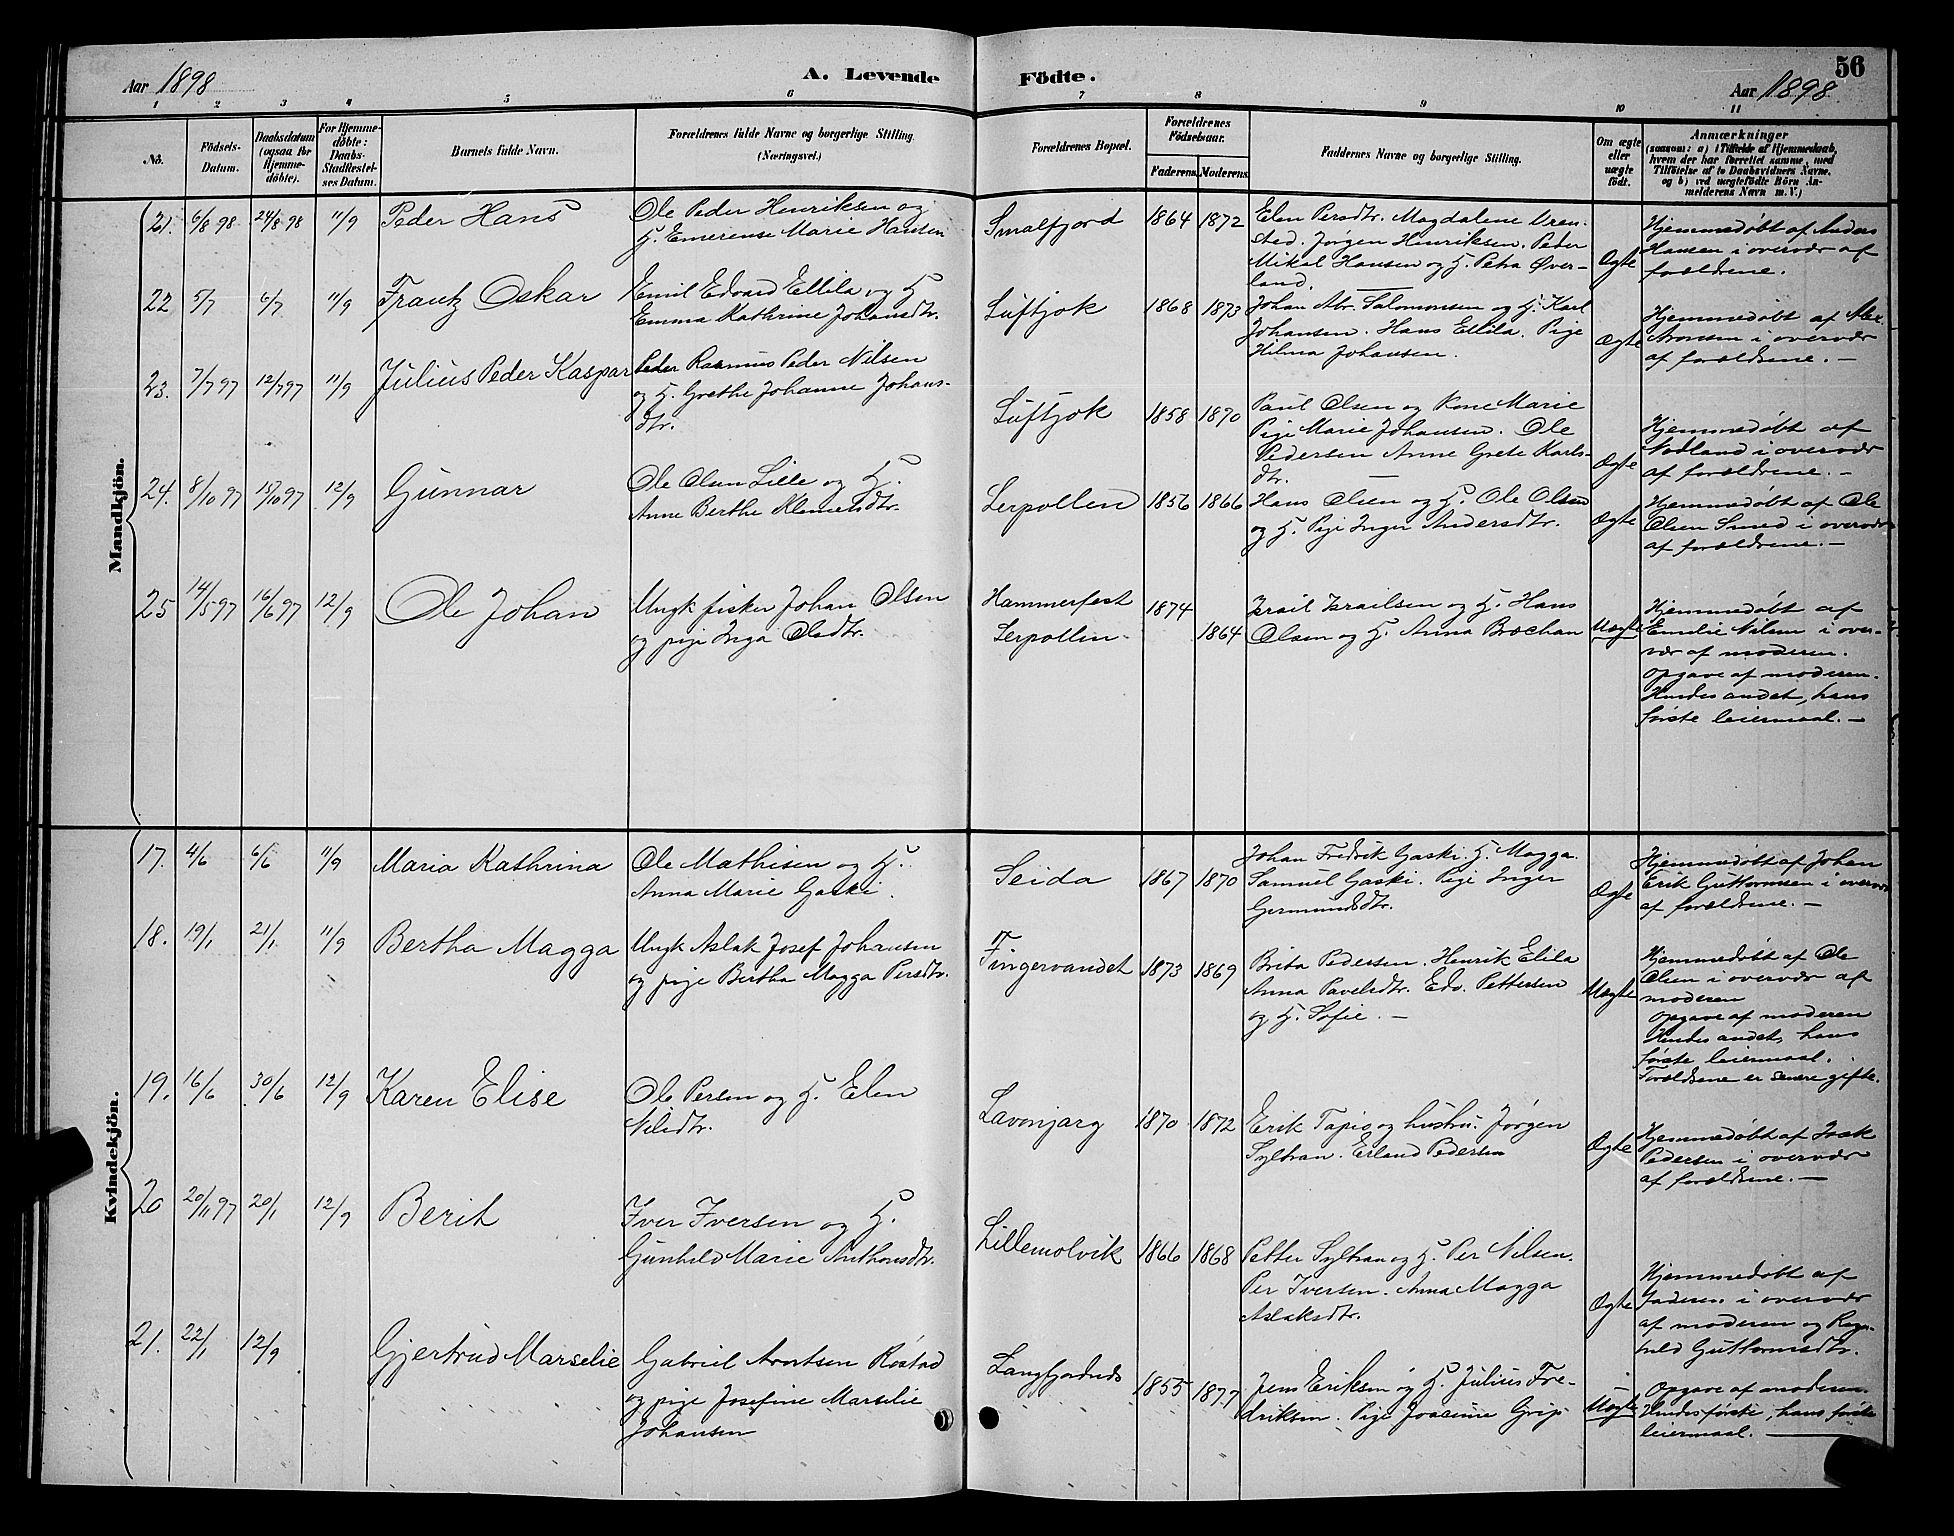 Aar 1898
A. Levende Födte.
Aar 1898.
56
1 2 3 4 5 6 7 8 9 10 11
No.
Födsels-Datum.
Daabsdatum (ogsaa for Hjemmedöbte).
For Hjemmedöbte: Daabs-Stadfæstelses Datum.
Barnets fulde Navn.
Forældrenes fulde Navne og borgerlige Stilling.
(Næringsvei.)
Forældrenes Bopæl.
Forældrenes Födselsaar.
Faderens. Moderens.
Faddernes Navne og borgerlige Stilling.
Om ægte eller uægte födt.
Anmærkninger
(saasom: a) i Tilfælde af Hjemmedaab,
hvem der har forrettet samme, med
Tilföielse af to Daabsvidners Navne.
og b) ved uægtefödte Börn An-
melderens Navn m. V.)
Mandkjön.
21. 6/8 98 24/8 98 11/9 Peder Hans
Ole Peder Henriksen og
H. Emerense Marie Hansen
Smalfjord 1864 1872
Elen Persdtr. Magdalene
sted. Jørgen Henriksen. Peder
Mikal Hansen og H. Petra Øver-
land.
Ægte
Hjemmedøbt af Anders
Hansen i overvær af
forældrene.
22 5/7 6/7 11/9 Frantz Oskar
Emil Edvard Ellila og H
Emma Kathrine Johansdtr.
Luftjok 1868 1873
Johan Abr. Salomonsen og H. Karl
Johansen. Hans Ellila. Pige
Hilma Johansen.
Ægte
Hjemmedøbt af Alex.
Aronsen i overvær
af forældrene. —
23. 7/7 97 12/7 97 11/9 Julius Peder Kaspar
Peder Rasmus Peder Nilsen
og H. Grethe Johanne Johans-
dtr.
Luftjok 1858 1870
Paul Olsen og Kone Marie
Pige Marie Johansen. Ole
Pedersen Anne Grete Karls-
dtr.
Ægte
Hjemmedøbt af
Nodland i overvær
af forældrene. —
24. 8/10 97 18/10 97 12/9 Gunnar
Ole Olsen Lille og H.
Anne Berthe Klemetsdtr.
Lerpollen 1856 1866
Hans Olsen og H. Ole Olsen
og H. Pige Inger Andersdtr.
Ægte
Hjemmedøbt af Ole
Olsen Smed i overvær
af forældrene. —
25 14/5 97 16/6 97 12/9 Ole Johan
Ungk fisker Johan Olsen
og pige Inga Olsdtr.
Hammerfest 1874
Lerpollen. 1864
Israil Israilsen og H. Hans
Olsen og H. Anna Brochan
Uægte
Hjemmedøbt af
Emilie Nilsen i over-
vær af moderen.
Opgave af moderen.
Hendes andet, hans
første leiermaal. —
Kvindekjön.
17. 4/6 6/6 11/9 Maria Kathrina
Ole Mathisen og H.
Anna Marie Gaski.
Seida 1867 1870
Johan Fredrik Gaski. H. Magga.
Samuel Gaski. Pige Inger
Germundsdtr.
Ægte
Hjemmedøbt af Johan
Erik Guttormsen i overvær
af forældrene. —
18. 19/1 21/1 11/9 Bertha Magga
Ungk Aslak Josef Johansen
og pige Bertha Magga Persdtr.
Fingervandet 1873 1869
Brita Pedersen. Henrik Elila
Anna Pavelsdtr. Edv. Pettersen
og H. Sofie. —
Uægte
Hjemmedøbt af Ole
Olsen i overvær af
moderen
Opgave af moderen
Hendes andet, hans
første leiermaal.
Forældrene er senere gifte.
19. 16/6 30/6 12/9 Karen Elise
Ole Persen og H. Elen
Nilsdtr.
Lavonjarg 1870 1872
Erik Tapio og hustru. Jørgen
Syltran. Erland Pedersen
Ægte
Hjemmedøbt af Isak
Pedersen i overvær
af forældrene. —
20 20/11 97 20/1 12/9 Berit
Iver Iversen og H.
Gunhild Marie Anthonsdtr.
Lillemolvik 1866 1868
Petter Syltran og H. Per Nilsen.
Per Iversen. Anna Magga
Aslaksdtr.
Ægte
Hjemmedøbt af
Faderen i overvær
af moderen og Ragn-
hild Guttormsdtr.
21. 22/1 12/9 Gjertrud Marselie
Gabriel Arntsen Røstad
og pige Josefine Marselie
Johansen
Langfjordnes 1855 1877
Jens Eriksen og H. Julius Fre-
driksen. Pige Joacime Grip
Uægte
Opgave af moderen.
Hendes første, hans første
leiermaal. —